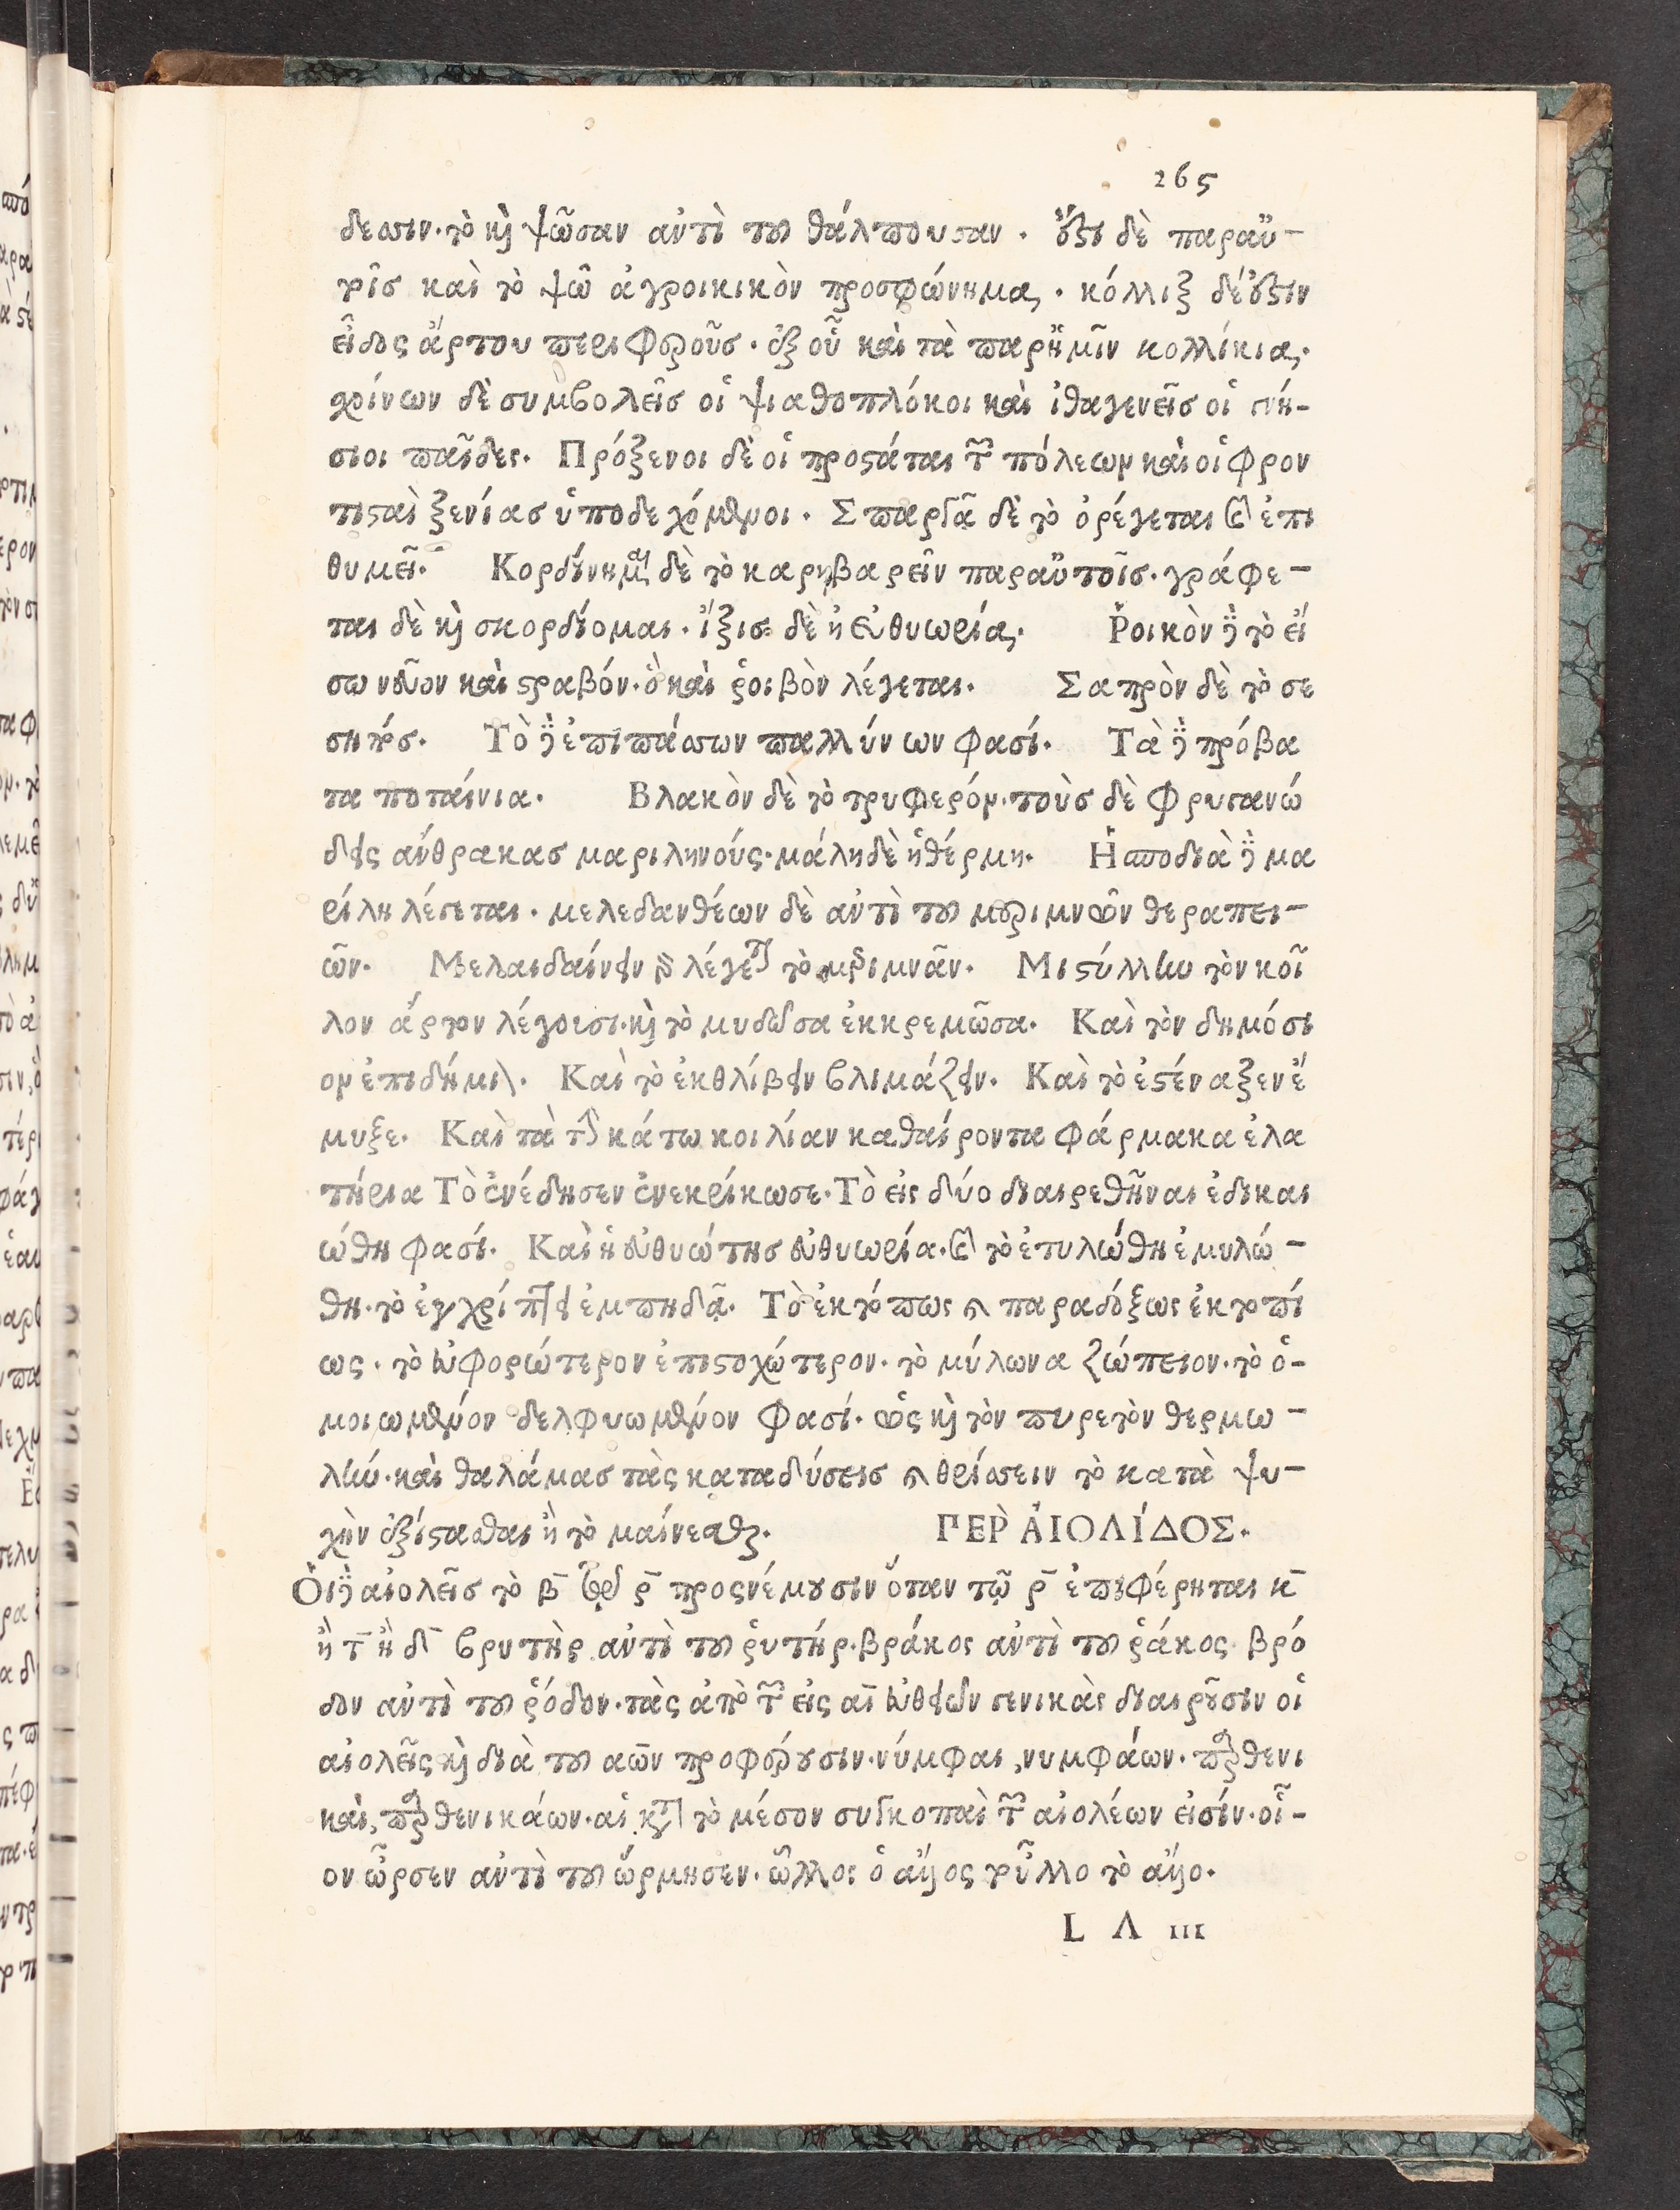 265
δεασιν. τὸ καὶ ψῶσαν αὐτὶ τοῦ θάλπουσαν. ἔστι δὲ παραὐ-
τοῖσ καὶ τὸ ψῶ ἀγροικικὸν προσφώνημα. κόλλιξ δέ ἐστιν
εἶδος ἄρτου περιφεροῦσ. ἐξ οὗ καὶ τὰ παρ ἡμῖν κολλίκια.
χρίνων δὲ συμβολεῖσ οἱ ψιαθοπλόκοι καὶ ἰθαγενεῖσ οἱ γνή-
σιοι παῖδες. Πρόξενοι δὲ οἱ προστάται τῶν πόλεων καὶ οἱ φρον
τισταὶ ξενίασ ὑποδεχόμενοι. Σπαργᾶ δὲ τὸ ὀρέγεται καὶ ἐπι
θυμεῖ. Κορδίνημα δὲ τὸ καρηβαρεῖν παραὐτοῖσ. γράφε-
ται δὲ καὶ σκορδίομαι. ἴξισ δὲ ἡ εὐθυωρία. Ῥοικὸν δὲ τὸ εἴ
σω νεῦον καὶ στραβόν. ὃ καὶ ῥοιβὸν λέγεται. Σαπρὸν δὲ τὸ σε
σηπόσ. Τὸ δὲ ἐπιπάσσων παλλύνων φασί. Τὰ δὲ πρόβα
τα ποταίνια. Βλακὸν δὲ τὸ τρυφερόν. τοὺσ δὲ φρυγανώ
δεις ἄνθρακασ μαριληνούς. μάλη δὲ ἡ θέρμη. Ἡ σποδιὰ δὲ μα
ρίλη λέγεται. μελεδανθέων δὲ αὐτὶ τοῦ μεριμνῶν θεραπει-
ῶν. Μελαιδαίνειν γὰρ λέγεται τὸ μεριμνᾶν. Μιστύλλην τὸν κοῖ
λον ἄρτον λέγουσι. καὶ τὸ μυδῶσα ἐκκρεμῶσα. Καὶ τὸν δημόσι
ον ἐπιδήμιον. Καὶ τὸ ἐκθλίβειν βλιμάζειν. Καὶ τὸ ἐστέναξεν ἔ
μυξε. Καὶ τὰ τὴν κάτω κοιλίαν καθαίροντα φάρμακα ἐλα
τήρια Τὸ ἐνέδησεν ἐνεκρίκωσε. Τὸ εἰς δύο διαιρεθῆναι ἐδικαι
ώθη φασί. Καὶ ἡ εὐθυώτησ εὐθυωρία. καὶ τὸ ἐτυλώθη ἐμυλώ-
θη. τὸ ἐγχρίπτει ἐμπηδᾷ. Τὸ ἐκτόπως καὶ παραδόξως ἐκτοπί
ως. τὸ εὐφορώτερον ἐπιστοχώτερον. τὸ μύλωνα ζώπειον. τὸ ὁ-
μοιωμένον δελφυωμένον φασί. ὡς καὶ τὸν πυρετὸν θερμω-
λήν. καὶ θαλάμασ τὰς καταδύσεισ καὶ θρίασειν τὸ κατὰ ψυ-
χὴν ἐξίστασθαι ἢ τὸ μαίνεσθαι. ΠΕΡῚ ἈΙΟΛΊΔΟΣ.
Ὁι δὲ αἰολεῖσ τὸ β̄ τῷ ρ̄ προςνέμουσιν ὅταν τῷ ρ̄ ἐπιφέρηται κ̄
ἢ τ̄ ἢ δ̄ βρυτὴρ αὐτὶ τοῦ ῥυτήρ. βράκος αὐτὶ τοῦ ῥάκος. βρό
δον αὐτὶ τοῦ ῥόδον. τὰς ἀπὸ τῶν εἰς αῑ εὐθειῶν γενικὰς διαιροῦσιν οἱ
αἰολεῖς καὶ διὰ τοῦ αων προφέρουσιν. νύμφαι, νυμφάων. παρθενι
καὶ, παρθενικάων. αἱ κατὰ τὸ μέσον συγκοπαὶ τῶν αἰολέων εἰσίν. οἷ-
ον ὦρσεν αὐτὶ τοῦ ὥρμησεν. ὦλλοι ὁ ἄλλος τοὖλλο τὸ ἄλλο.
L Λ III